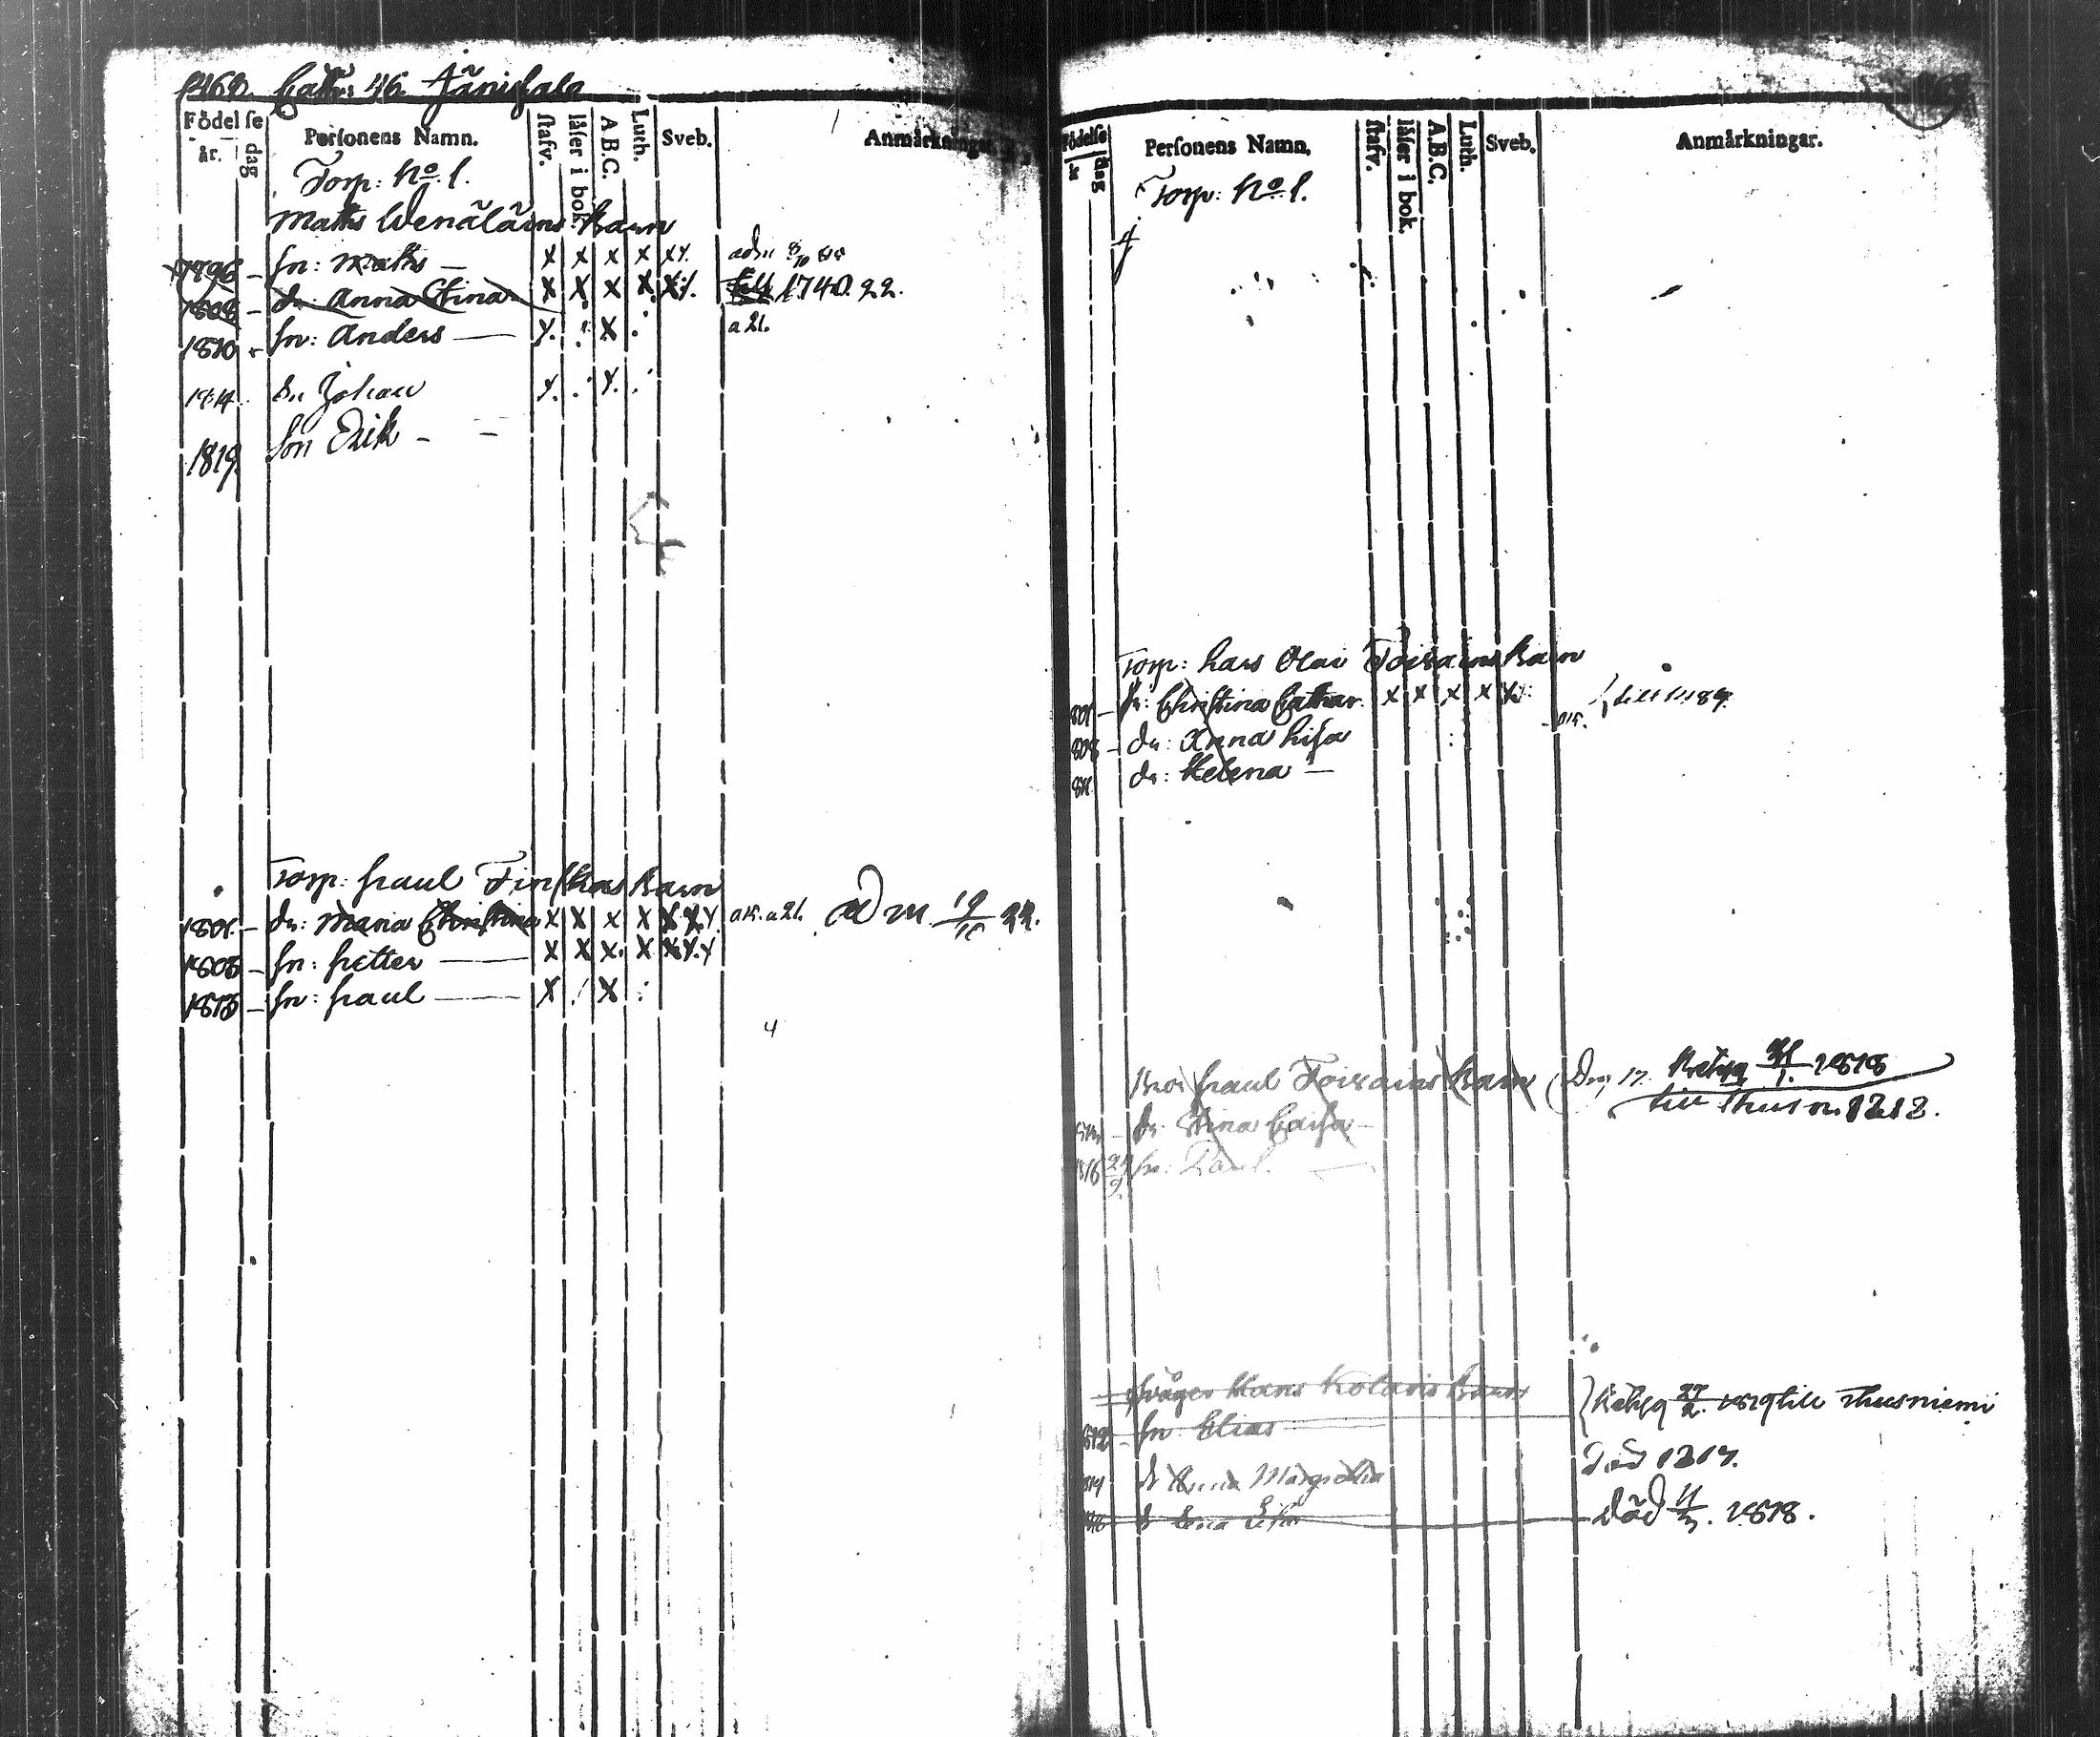 1468. Cath: 46. Jänisfalo
Födelse år. dag Personens Namn. stafv. läser i bok. A.B.C. Luth. Sveb. Anmärkningar.
Torp: No. 1.
Matts Wenäläins Barn
1796 – sn: Matts – x x x x x x. adm 8/10
1808 – dr: Anna Stina x x x x x x. 1740. 22.
1810 – sn: Anders — x. x a 21.
1814 sn Johan x. x.
1819 son Erik – –
Torp: Paul Finskas Barn
1801. – dr: Maria Christina x x x x x x x a 15. a 21. adm. 19/10 22.
1808 – sn: Petter — x x x x x x x
1813 – sn: Paul — x x
4
Födelse år dag Personens Namn. stafv. läser i bok. A.B.C. Luth. Sveb. Anmärkningar.
Torp: No. 1.
Torp: Lars Olai Toivains Barn
801 – dr: Christina Cathar. x x x x x x till 1489.
808 – dr: Anna Lisa a 15.
811. dr: Helena —
Bror Paul Toivains Barn
1818
till Thusn. 1212.
– dr Stina Caisa –
1816 24/9 sn: Paul. —
Svåger Hans Kolaris Barn 27/2. 1819 till Thusniemi
812 – sn Elias
814 dr Anna Margretha Död 1817.
dr Lena Lisa Död 11/3. 1818.